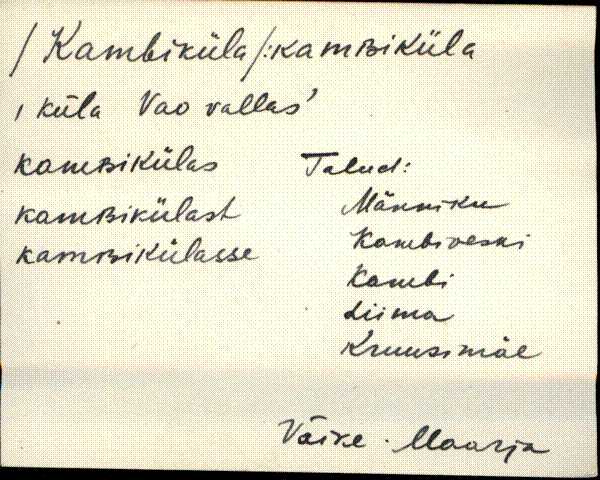 /Kambiküla/: kamʙiküla
, küla Vao vallas'
kamʙikülas
kamʙikülast
kamʙikülasse
Talud:
Männiku
Kambiveski
Kambi
Liima
Kruusimäe
Väike-Maarja